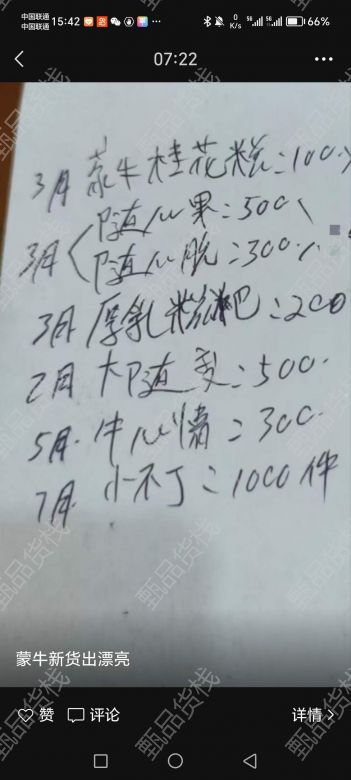 中国联通 15:42 0 K/s 5G 5G 66%
中国联通
07:22
3月 蒙牛桂花糍:100
3月 随心果:500
随心脆:300
3月 厚乳糍粑:200
2月 大随变:500
5月 牛心情:300
7月 小布丁:1000件
蒙牛新货出漂亮
赞 评论 详情
甄品货栈